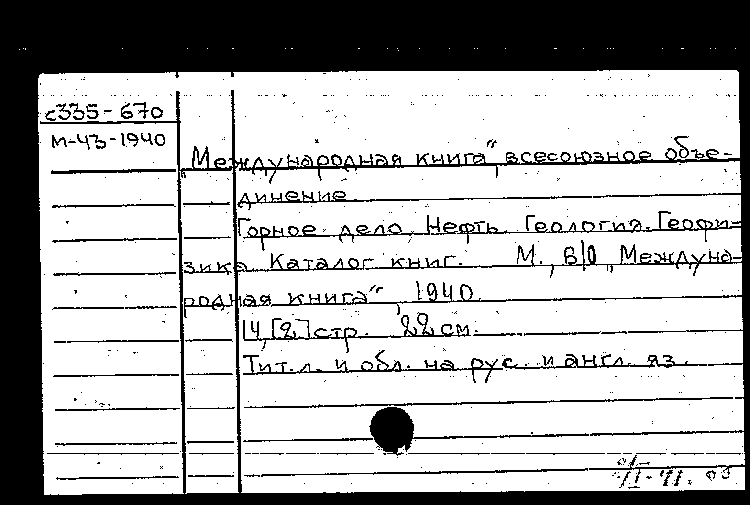 с335-670
М-43-1940
„Международная книга", всесоюзное объе-
динение.
Горное дело, Нефть. Геология. Геофи-
зика. Каталог книг. М., В/О „Междуна-
родная книга", 1940.
14, [2] стр. 22 см.
Тит. л. и обл. на рус. и англ. яз.